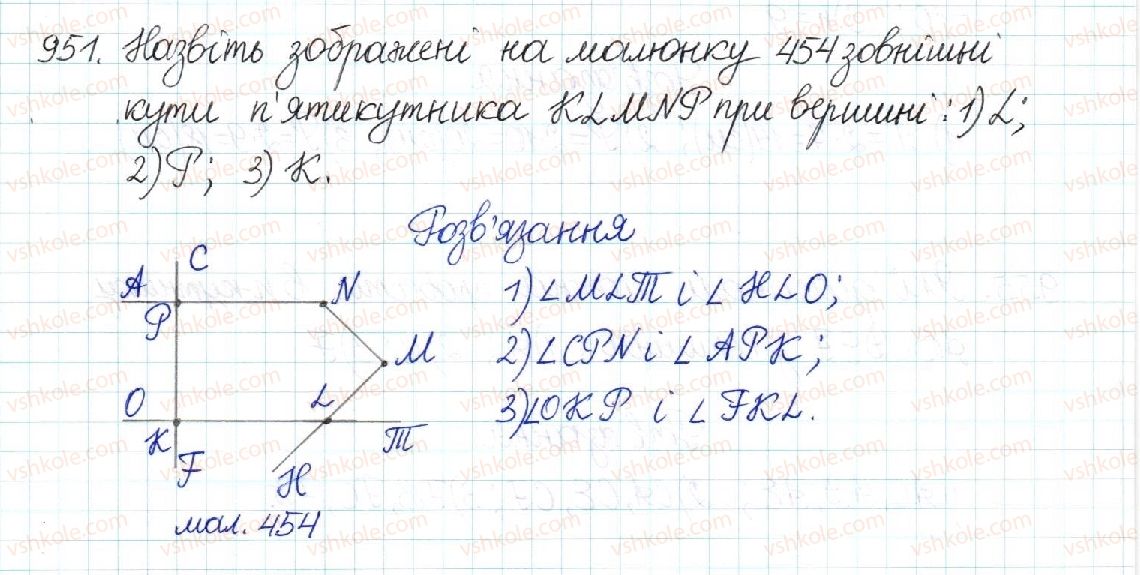 951. Назвіть зображені на малюнку 454 зовнішні
кути п'ятикутника KLMNP при вершині: 1) L;
2) P; 3) K.
Розв'язання
C
A
N
P
M
O
L
K
T
F
H
мал. 454
1) ∠MLT і ∠HLO;
2) ∠CPN і ∠APK;
3) ∠OKP і ∠FKL.
vshkole.com